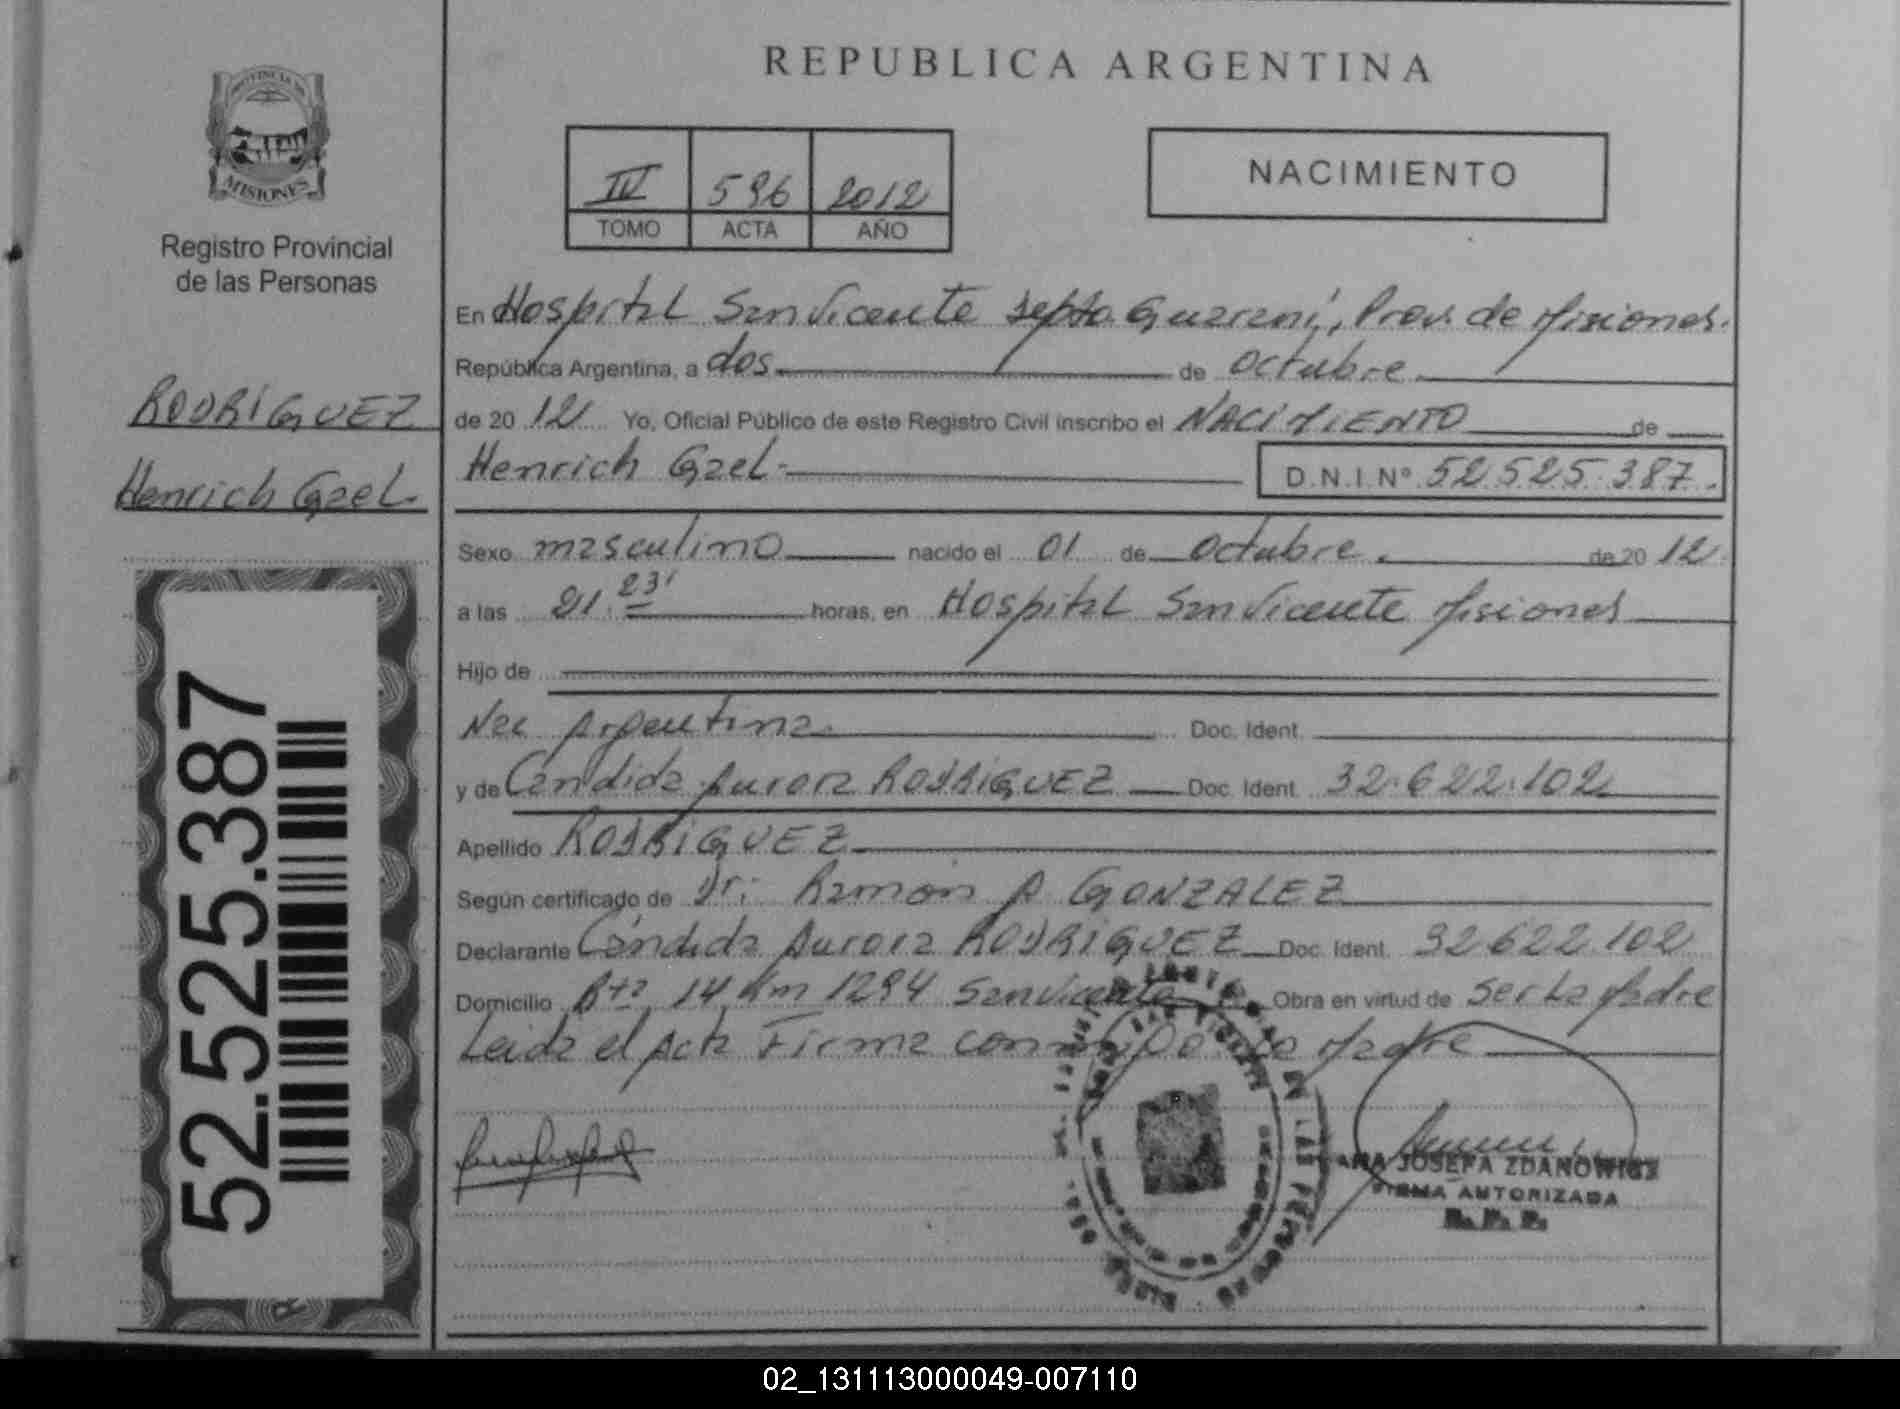 REPUBLICA ARGENTINA
PROVINCIA DE
MISIONES
Registro Provincial
de las Personas
IV 596 2012
TOMO ACTA AÑO
NACIMIENTO
En Hospital San Vicente Depto Guarani, Prov. de Misiones.
República Argentina, a dos de Octubre
de 2012 Yo, Oficial Público de este Registro Civil inscribo el NACIMIENTO de
Henrich Gael D.N.I.Nº 52.525.387.
RODRIGUEZ
Henrich Gael
Sexo masculino nacido el 01 de Octubre de 2012
a las 21:23' horas, en Hospital San Vicente Misiones
Hijo de
Nac Argentina Doc. Ident.
y de Candida Aurora RODRIGUEZ Doc. Ident. 32.622.102
Apellido RODRIGUEZ
Según certificado de Dr: Ramon A GONZALEZ
Declarante Cándida Aurora RODRIGUEZ Doc. Ident. 32.622.102
Domicilio Rta 14 Km 1294 San Vicente Obra en virtud de Ser La Madre
Leida el Acta Firma conmigo La Madre
52.525.387
ANA JOSEFA ZDANOWICZ
FIRMA AUTORIZADA
02_131113000049-007110